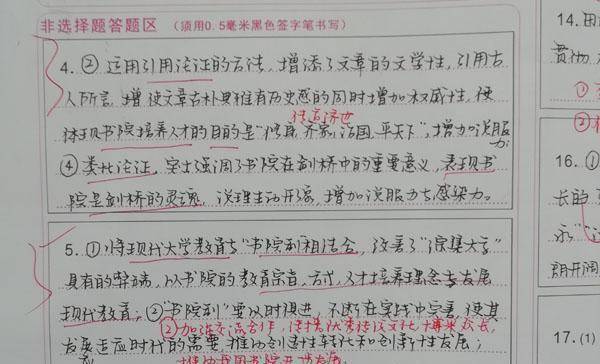 非选择题答题区（须用0.5毫米黑色签字笔书写）
4. ② 运用引用论证的方法，增添了文章的文学性，引用古
人所言，增使文章古朴典雅有历史感的同时增加权威性，使
体现书院培养人才的目的是“修身、齐家、治国、平天下”，增加说服力。
④ 类比论证，突出强调了书院在剑桥中的重要意义，表现书
院是剑桥的灵魂，说理生动形象，增加说服力与感染力。
5. ① 将现代大学教育与“书院制相结合，改善了
具有的弊端，从书院的教育宗旨、方式、人才培养理念去发展
现代教育；②“书院制”要与时俱进，不断在实践中完善，使其
② 加强交流合作，
发展适应时代的需要，推动创造性转化和创新性发展；
推动我国书院开书发展
14. 用
贯彻
①
②
16. ①
长的
示”
朗开阔
17. (1)